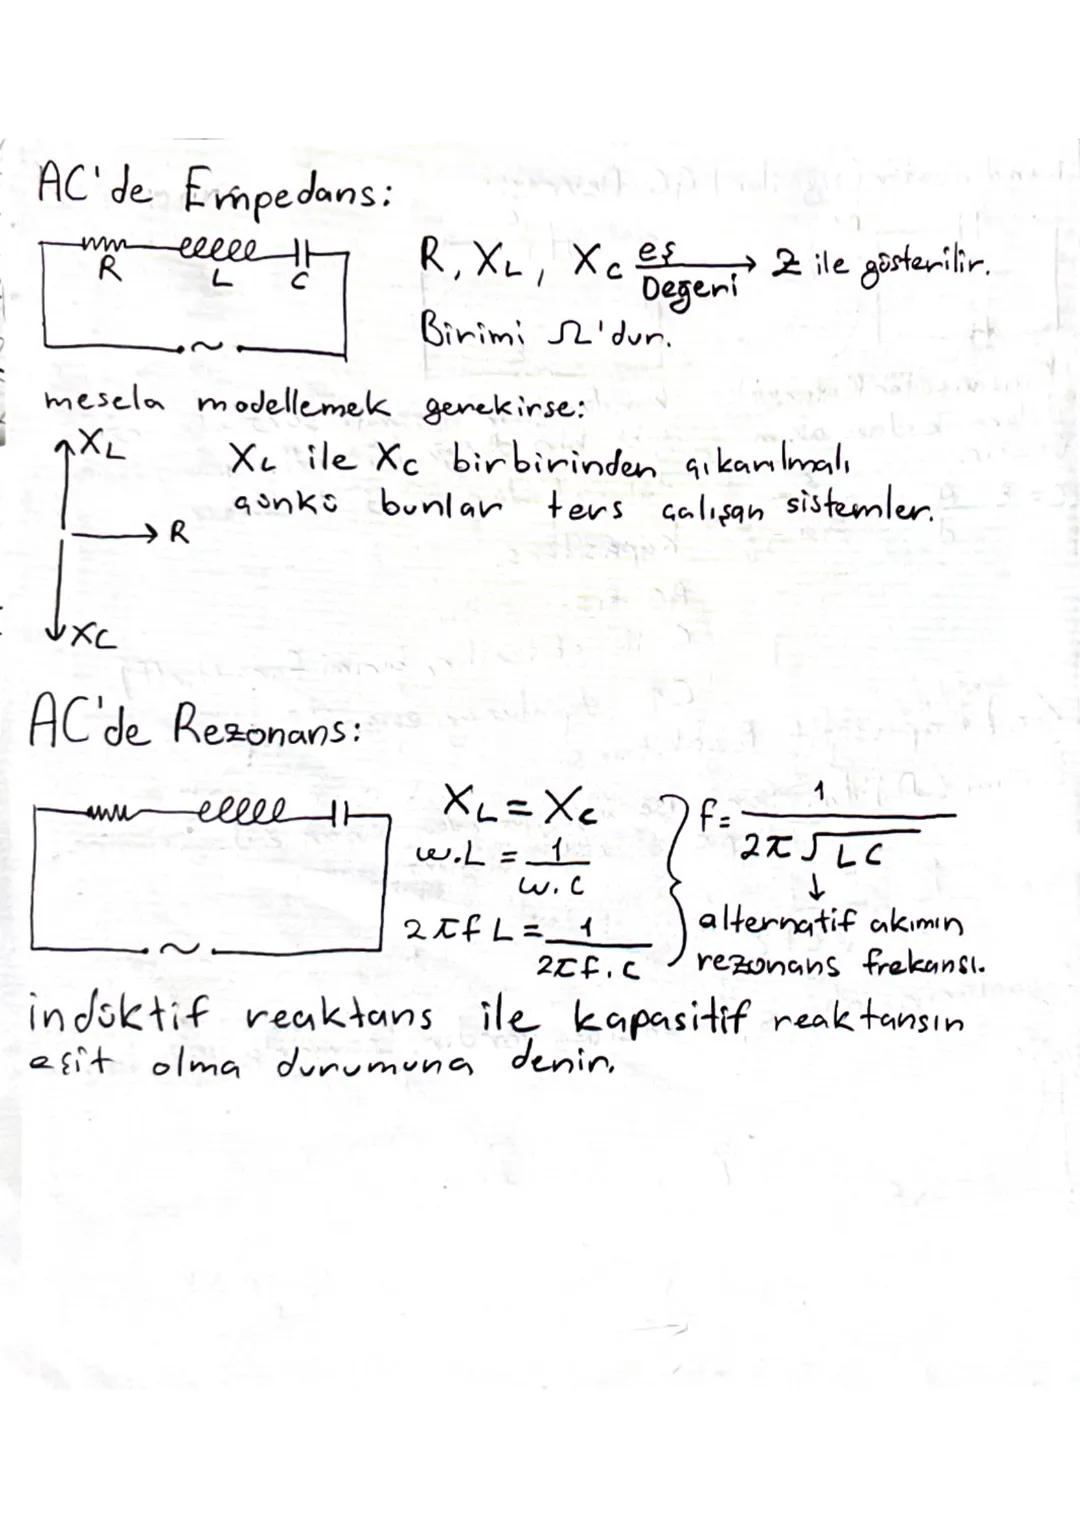 AC'de Empedans:
R L C
R, XL, Xc eş Değeri → Z ile gösterilir.
Birimi Ω'dur.
mesela modellemek gerekirse:
XL
XL ile Xc birbirinden çıkarılmalı
çünkü bunlar ters çalışan sistemler.
R
XC
AC'de Rezonans:
XL = Xc
w.L = 1/w.C
2πfL = 1/2πf.C
f = 1/2π√LC
↓
alternatif akımın
rezonans frekansı.
indüktif reaktans ile kapasitif reaktansın
eşit olma durumuna denir.